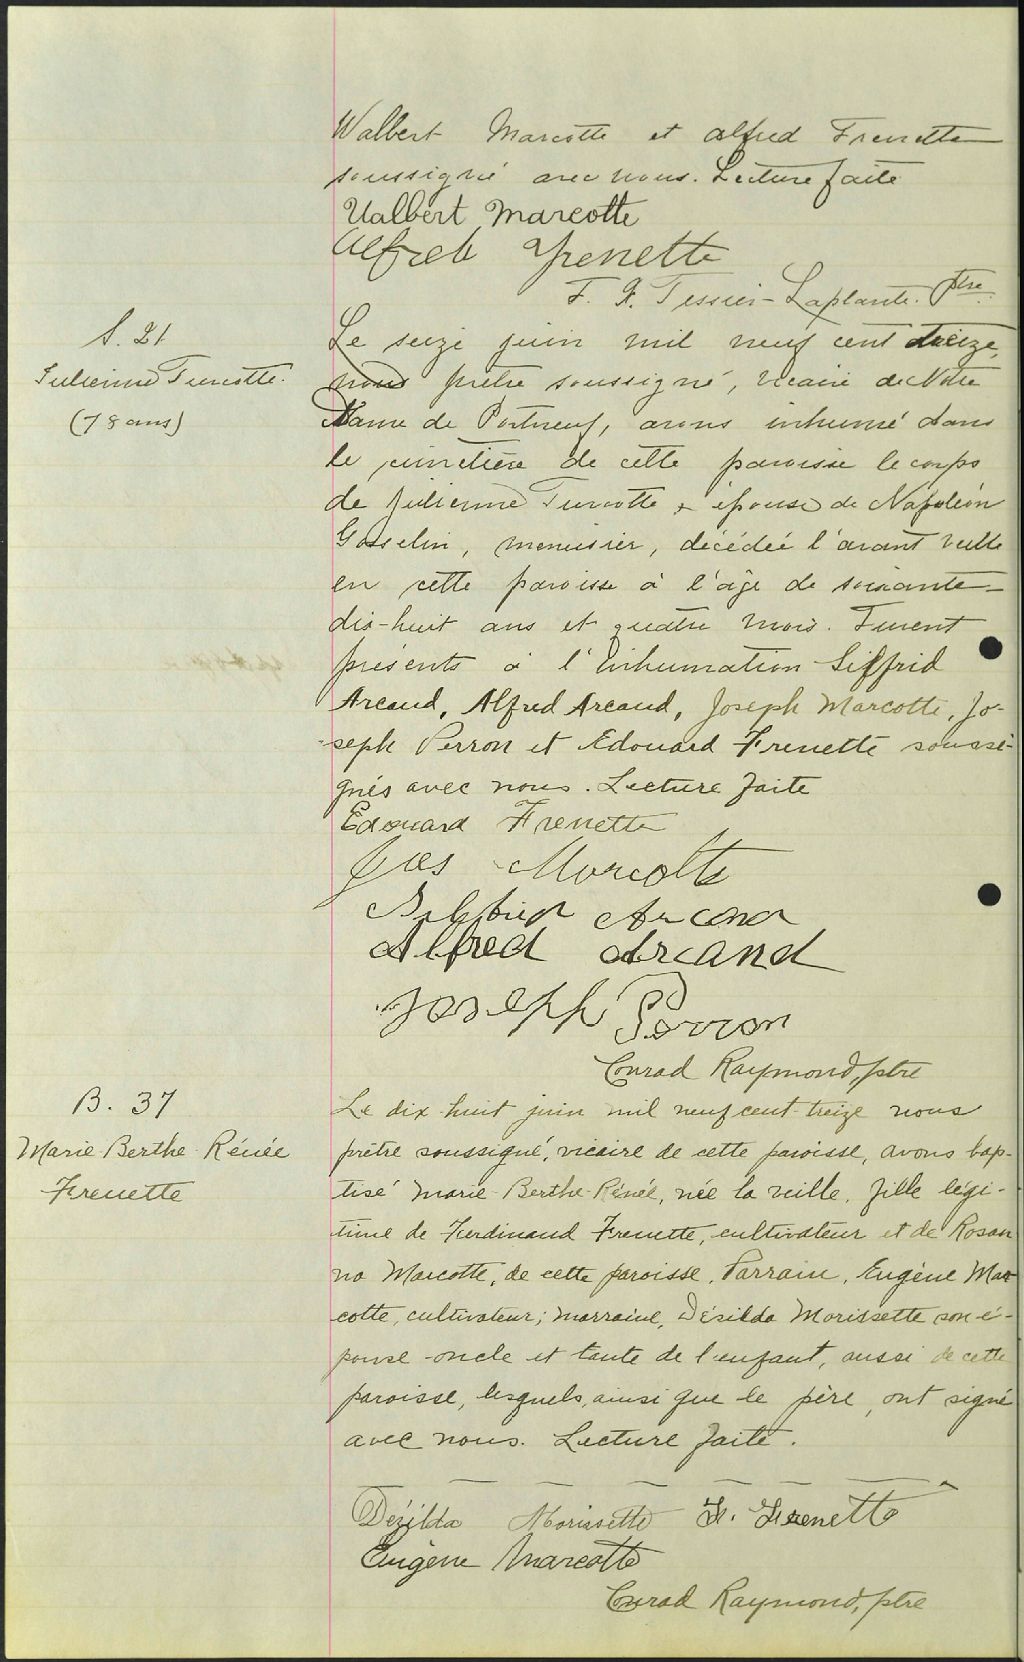 Walbert Marcotte et Alfred Frenette
soussigné avec nous. Lecture faite
Ualbert Marcotte
Alfred Frenette
F. X. Tessier-Laplante. Ptre
S. 21
Julienne Turcotte.
(78 ans)
Le seize juin mil neuf cent treize,
nous prêtre soussigné, vicaire de Notre
Dame de Portneuf, avons inhumé dans
le cimetière de cette paroisse le corps
de Julienne Turcotte épouse de Napoléon
Gosselin, menuisier, décédée l'avant veille
en cette paroisse à l'âge de soixante-
dix-huit ans et quatre mois. Furent
présents à l'inhumation Siffrid
Arcand, Alfred Arcand, Joseph Marcotte, Jo-
seph Perron et Edouard Frenette soussi-
gnés avec nous. Lecture faite
Edouard Frenette
Jos Marcotte
Arcand
Alfred Arcand
Joseph Perron
Conrad Raymond, ptre
B. 37
Marie Berthe Rénée
Frenette
Le dix-huit juin mil neuf cent treize nous
prêtre soussigné, vicaire de cette paroisse, avons bap-
tisé Marie Berthe Rénée, née la veille, fille légi-
time de Ferdinand Frenette, cultivateur et de Rosan
na Marcotte, de cette paroisse. Parrain, Eugène Mar
cotte, cultivateur; marraine, Désilda Morissette son é-
pouse oncle et tante de l'enfant, aussi de cette
paroisse, lesquels, ainsi que le père, ont signé
avec nous. Lecture faite.
Dézilda Morissette F. Frenette
Eugène Marcotte
Conrad Raymond, ptre